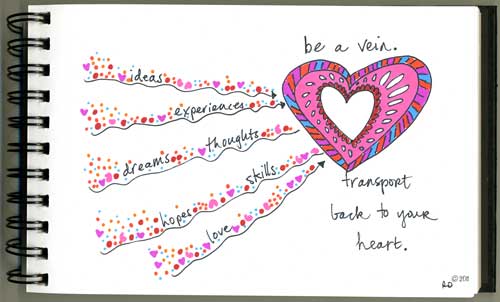 be a vein.
ideas
experiences
thoughts
dreams
skills
hopes
love
transport
back to your
heart.
© 2011